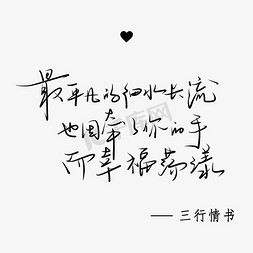 最平凡的细水长流
也因牵了你的手
而幸福荡漾
—— 三行情书